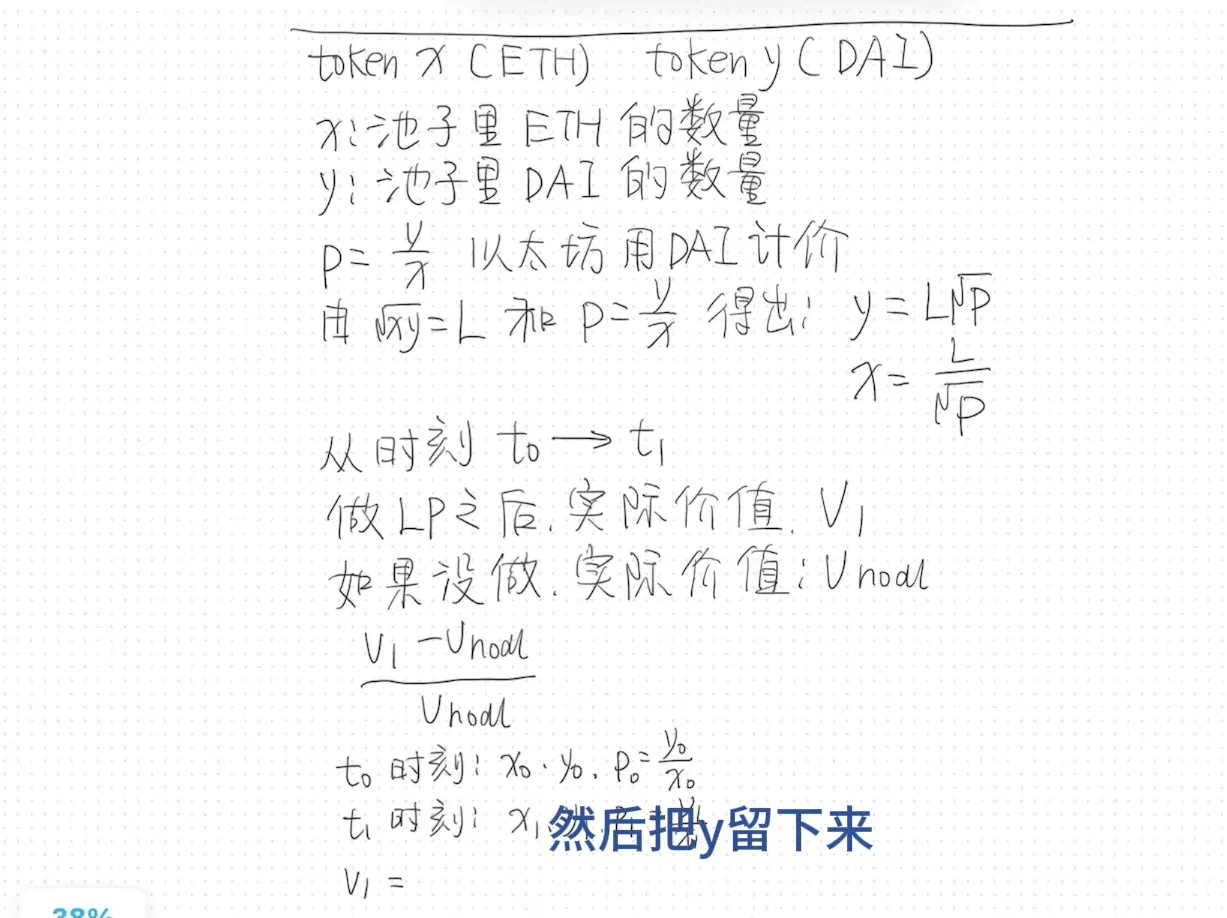 token x (ETH) token y (DAI)
x: 池子里 ETH 的数量
y: 池子里 DAI 的数量
P = y/x 以太坊用DAI计价
由 √xy = L 和 P = y/x 得出: y = L√P
x = L/√P
从时刻 t₀ → t₁
做LP之后, 实际价值. V₁
如果没做. 实际价值: Vhodl
(V₁ - Vhodl)/Vhodl
t₀ 时刻: x₀. y₀. P₀ = y₀/x₀
t₁ 时刻: x₁
然后把y留下来
V₁ =
38%